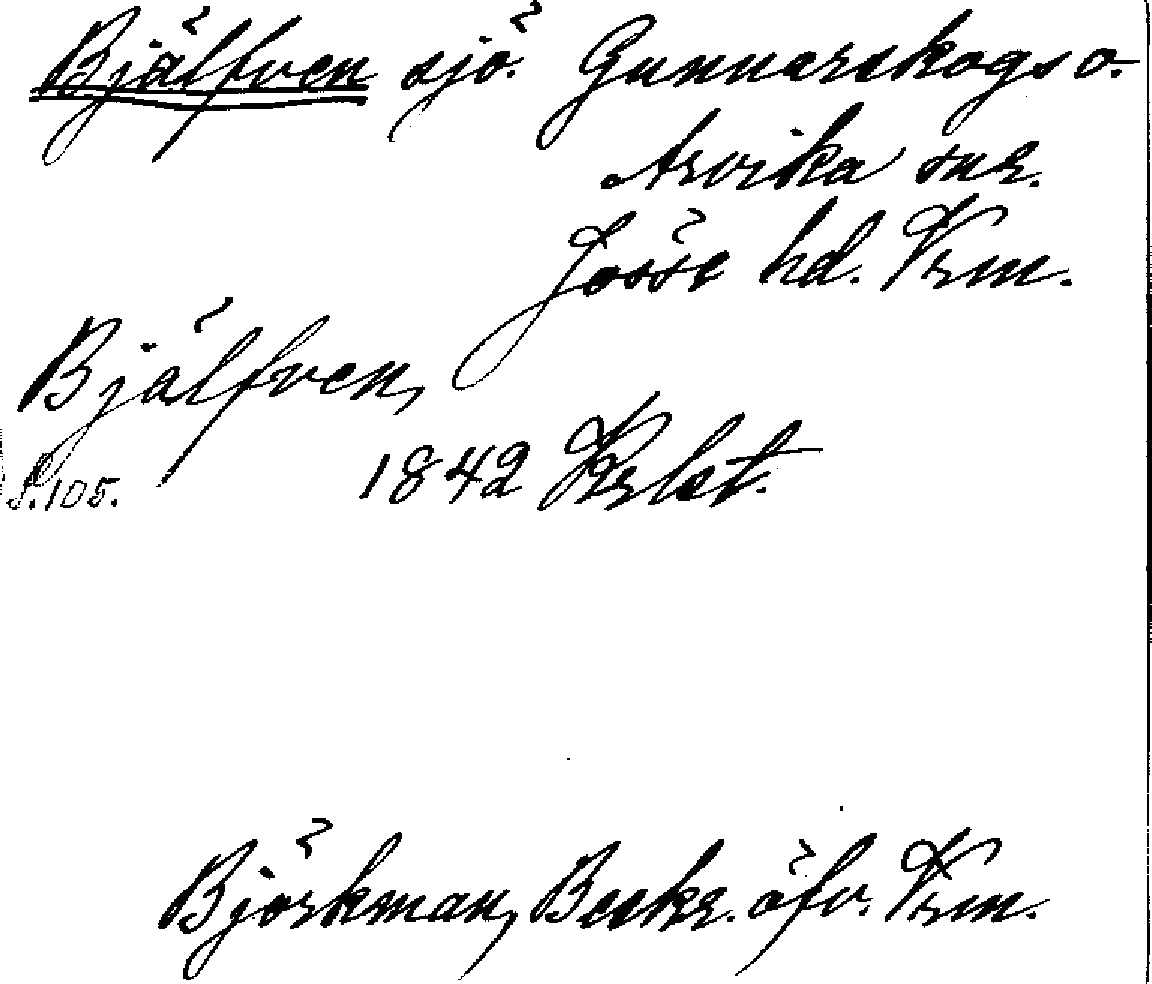 Bjälfven sjö. Gunnarskogs o.
Arvika snr.
Jösse hd. Vrm.
Bjälfven,
S. 105. 1842 Krlst.
Björkman, Beskr. öfv. Vrm.